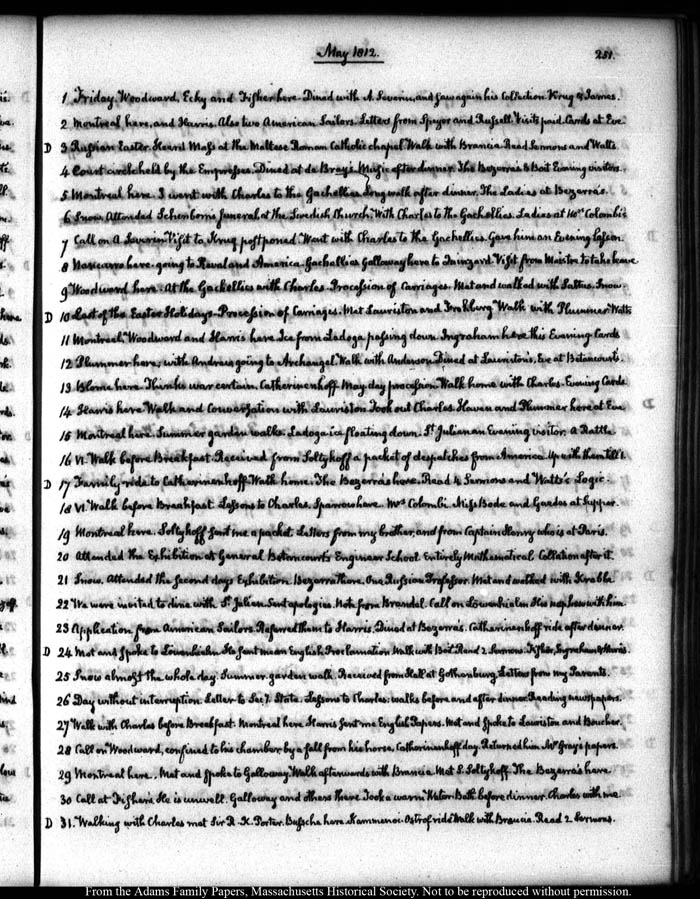 May 1812.
251.
1 Friday. Woodward, Ecky and Fisher here. Dined with A. Severin, and saw again his Collection. Krug & James.
2 Montreal, here, and Harris. Also two American Sailors. Letters from Speyer and Russell. Visits paid. Cards at Eve.
D 3 Russian Easter. Heard Mass at the Maltese Roman Catholic chapel. Walk with Brancia. Read Sermons and Watts
4 Court circle held by the Empresses. Dined at de Bray's. Music after dinner. The Bezerra's & Boit Evening visitors.
5 Montreal here. I went with Charles to the Gachellies. Long walk after dinner. The Ladies at Bezerra's.
6 Snow. Attended Schenbom's funeral at the Swedish Church. With Charles to the Gachellies. Ladies at Mrs Colombi's
7 Call on A. Severin. Visit to Krug postponed. Went with Charles to the Gachellies. Gave him an Evening lesson.
8 Navarro here. going to Reval and America. Gachellies Galloway here to Visit from Maistre to take leave
9 Woodward here. At the Gachellies with Charles. Procession of Carriages. Met and walked with Snow.
D 10 Last of the Easter Holidays. Procession of Carriages. Met Lauriston and Walk with Plummer. Watts
11 Montreal. Woodward and Harris here. Ice from Ladoga passing down. Ingraham here this Evening. Cards
12 Plummer here, with Andrews going to Archangel. Walk with Anderson. Dined at Lauriston's. Eve at Betancourt's.
13 Blome here. Thinks war certain. Catherinenhoff. May day procession. Walk home with Charles. Evening Cards
14 Harris here. Walk and Conversation with Lauriston. Took out Charles. Haven and Plummer here at Eve.
15 Montreal here. Summer garden walks. Ladoga ice floating down. St Julien an Evening visitor. A Rattle
16 VI. Walk before Breakfast. Received from Soltykoff a packet of despatches from America. Up with them till 1.
D 17 Family ride to Catherinenhoff. Walk home. The Bezerras here. Read 4 Sermons and Watts's Logic.
18 VI. Walk before Breakfast. Lessons to Charles. Sparrow here. Mrs Colombi. Miss Bode and Guedes at Supper.
19 Montreal here. Soltykoff sent me a packet. Letters from my brother, and from Captain Henry who is at Paris.
20 Attended the Exhibition at General Betancourt's Engineer School. Entirely Mathematical. Collation after it.
21 Snow. Attended the second days Exhibition. Bezerra there. One Russian Professor. Met and walked with Krabbe
22 We were invited to dine with St. Julien. Sent apologies. Note from Brandel. Call on Löwenhielm. His nephew with him.
23 Application from American Sailors. Referred them to Harris. Dined at Bezerra's. Catherinenhoff ride after dinner.
D 24 Met and spoke to Löwenhielm. He sent me an English Proclamation. Walk with Boit. Read 2 Sermons. Fisher, Ingraham & Harris.
25 Snow almost the whole day. Summer garden walk. Received from Hall at Gothenburg, Letters from my Parents.
26 Day without interruption. Letter to Secy. State. Lessons to Charles. walks before and after dinner. Reading newspapers.
27 Walk with Charles before Breakfast. Montreal here. Harris sent me English Papers. Met and spoke to Lauriston and Boucher.
28 Call on Woodward, confined to his chamber by a fall from his horse. Catherinenhoff day. Returned him Mr Gray's papers.
29 Montreal here. Met and spoke to Galloway. Walk afterwards with Brancia. Met S. Soltykoff. The Bezerra's here.
30 Call at Fisher's. He is unwell. Galloway and others there. Took a warm Water Bath before dinner. Charles with me.
D 31. Walking with Charles met Sir R. K. Porter. Bussche here. Kammenoi-Ostrof ride. Walk with Brancia. Read 2 Sermons.
From the Adams Family Papers, Massachusetts Historical Society. Not to be reproduced without permission.